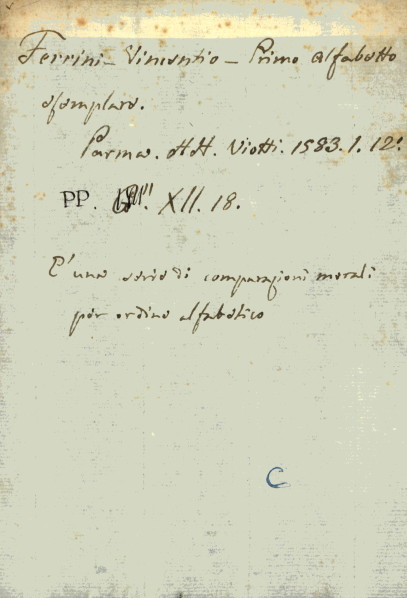 Ferrini - Vincentio - Primo alfabetto
esemplare.
Parma. HH. Viotti. 1583. 1. 12º.
PP. XII. 18.
E' una serie di comparazioni morali
per ordine alfabetico
C